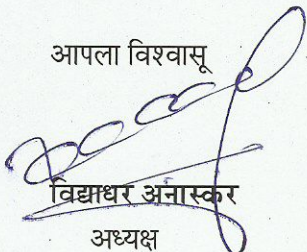 आपला विश्वासू
विद्याधर अनास्कर
अध्यक्ष